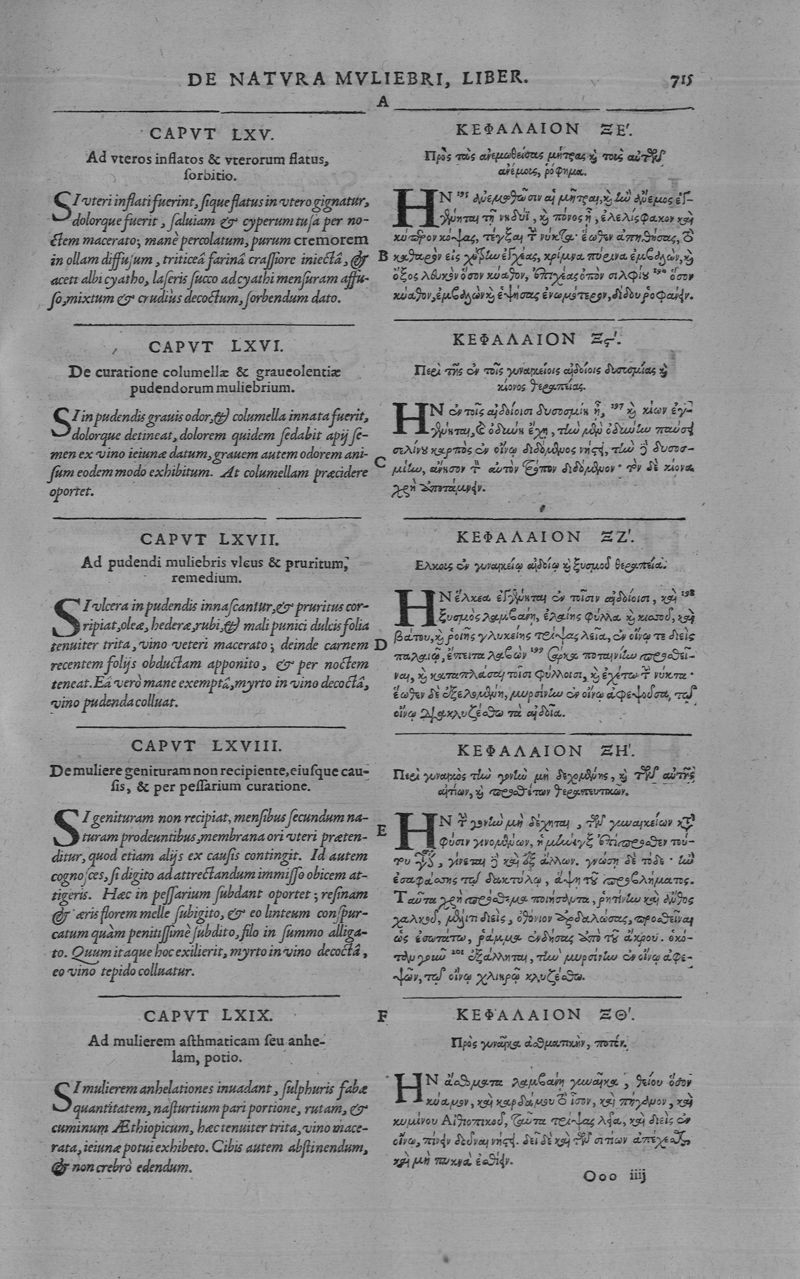 DE NATVRA MVLIEBRI, LIBER. 715
A
CAPVT LXV.
Ad vteros inflatos & vterorum flatus,
sorbitio.
SI vteri inflati fuerint, sique flatus in vtero gignatur,
dolorque fuerit, saluiam & cyperum tusa per no-
ctem macerato; manè percolatum, purum cremorem
in ollam diffusum, triticeâ farinâ crassiore iniectâ, &
aceti albi cyatho, laseris succo ad cyathi mensuram affu-
so, mixtum & crudiùs decoctum, sorbendum dato.
CAPVT LXVI.
De curatione columellæ & graueolentiæ
pudendorum muliebrium.
SI in pudendis grauis odor, & columella innata fuerit,
dolorque detineat, dolorem quidem sedabit apij se-
men ex vino ieiunæ datum, grauem autem odorem ani-
sum eodem modo exhibitum. At columellam præcidere
oportet.
CAPVT LXVII.
Ad pudendi muliebris vlcus & pruritum,
remedium.
SI vlcera in pudendis innascantur, & pruritus cor-
ripiat, oleæ, hederæ, rubi, & mali punici dulcis folia
tenuiter trita, vino veteri macerato; deinde carnem
recentem folijs obductam apponito, & per noctem
teneat. Eâ verò mane exemptâ, myrto in vino decoctâ,
vino pudenda colluat.
CAPVT LXVIII.
De muliere genituram non recipiente, eiusque cau-
sis, & per pessarium curatione.
SI genituram non recipiat, mensibus secundum na-
turam prodeuntibus, membrana ori vteri præten-
ditur, quod etiam alijs ex causis contingit. Id autem
cognosces, si digito ad attrectandum immisso obicem at-
tigeris. Hæc in pessarium subdant oportet; resinam
& æris florem melle subigito, & eo linteum conspur-
catum quàm penitissimè subdito, filo in summo alliga-
to. Quum itaque hoc exilierit, myrto in vino decoctâ,
eo vino tepido colluatur.
CAPVT LXIX.
Ad mulierem asthmaticam seu anhe-
lam, potio.
SI mulierem anhelationes inuadant, sulphuris fabæ
quantitatem, nasturtium pari portione, rutam, &
cuminum Æthiopicum, hæc tenuiter trita, vino mace-
rata, ieiunæ potui exhibeto. Cibis autem abstinendum,
& non crebrò edendum.
B
C
D
E
F
ΚΕΦΑΛΑΙΟΝ ΞΕʹ.
Πρὸς τὰς ἀνεμωθείσας μήτρας καὶ τοὺς αὐτῶν
ἀνέμοις, ῥόφημα.
ΗΝ 195 ἀνεμωθῶσιν αἱ μῆτραι, καὶ ἢν ἄνεμος ἐγ-
γένηται τῇ νηδύϊ, καὶ πόνος ᾖ, ἐλελίσφακον καὶ
κύπειρον κόψας, τέγξαι τὴν νύκτα· ἕωθεν ἀπηθήσας, τὸ
καθαρὸν εἰς χύτραν ἐγχέας, κρίμνα πύρινα ἐμβαλὼν, καὶ
ὄξος λευκὸν ὅσον κύαθον, ἐπιχέας ὀπὸν σιλφίου 196 ὅσον
κύαθον, ἐμβαλὼν καὶ ἑψήσας ἐνωμότερον, δίδου ῥοφάνειν.
ΚΕΦΑΛΑΙΟΝ Ξϛʹ.
Περὶ τῆς ἐν τοῖς γυναικείοις αἰδοίοις δυσοσμίας καὶ
κίονος θεραπείας.
ΗΝ ἐν τοῖς αἰδοίοισι δυσοσμίη ᾖ, 197 καὶ κίων ἐγ-
γένηται, καὶ ὀδύνη ἔχῃ, τὴν μὲν ὀδύνην παύσει
σελίνου καρπὸς ἐν οἴνῳ διδόμενος νήστει, τὴν δὲ δυσοσ-
μίην, ἄνησον τὸν αὐτὸν τρόπον διδόμενον· τὸν δὲ κίονα
χρὴ ἀποτάμνειν.
ΚΕΦΑΛΑΙΟΝ ΞΖʹ.
Ελκοις ἐν γυναικείῳ αἰδοίῳ καὶ ξυσμοῦ θεραπεία.
ΗΝ ἕλκεα ἐγγένηται ἐν τοῖσιν αἰδοίοισι, καὶ 198
ξυσμὸς λαμβάνῃ, ἐλαίης φύλλα καὶ κισσοῦ, καὶ
βάτου, καὶ ῥοιῆς γλυκείης τρίψας λεῖα, ἐν οἴνῳ τε διεὶς
παλαιῷ, ἔπειτα λαβὼν 199 σάρκα ποταινίην προσθεῖ-
ναι, καὶ καταπλάσαι τοῖσι φύλλοισι, καὶ ἐχέτω τὴν νύκτα·
ἕωθεν δὲ ἐξελομένη, μυρσίνην ἐν οἴνῳ ἀφεψοῦσα, τῷ
οἴνῳ διακλυζέσθω τὰ αἰδοῖα.
ΚΕΦΑΛΑΙΟΝ ΞΗʹ.
Περὶ γυναικὸς τὴν γονὴν μὴ δεχομένης, καὶ τῶν αὐτῆς
αἰτίων, καὶ προσθέτων θεραπευτικῶν.
ΗΝ τὴν γονὴν μὴ δέχηται, τῶν γυναικείων κατὰ
φύσιν γινομένων, ἡ μήνιγξ ἐπίπροσθεν τού-
του γίνεται δὲ καὶ ἐξ ἄλλων. γνώσῃ δὲ τόδε· ἢν
ἐσαφάσσῃς τῷ δακτύλῳ, ἅψῃ τοῦ προβλήματος.
Ταῦτα χρὴ πρόσθεμα ποιήσαντα, ῥητίνην καὶ ἄνθος
χαλκοῦ, μέλιτι διεὶς, ὀθόνιον ἀρδαλώσας, προσθεῖναι
ὡς ἐσωτάτω, ῥάμμα ἐνδήσας ἀπὸ τοῦ ἄκρου. ὁκό-
201 ἐξάλληται, τὴν μυρσίνην ἐν οἴνῳ ἀφε-
ψῶν, τῷ οἴνῳ χλιαρῷ κλυζέσθω.
ΚΕΦΑΛΑΙΟΝ ΞΘʹ.
Πρὸς γυναῖκα ἀσθματικὴν, ποτόν.
ΗΝ ἄσθματα λαμβάνῃ γυναῖκα, θείου ὅσον
κύαμον, καὶ καρδάμου τὸ ἴσον, καὶ πήγανον, καὶ
κυμίνου Αἰθιοπικοῦ, ταῦτα τρίψας λεῖα, καὶ διεὶς ἐν
οἴνῳ, πίνειν δοῦναι νήστει. δεῖ δὲ καὶ τῶν σιτίων ἀπέχεσθαι,
καὶ μὴ πυκνὰ ἐσθίειν.
Ooo iiij